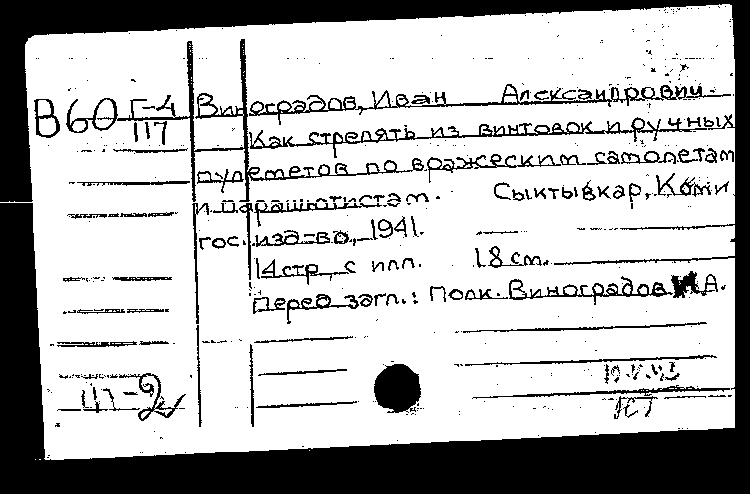 В60 Г-4/117
Виноградов, Иван Александрович.
Как стрелять из винтовок и ручных
пулеметов по вражеским самолетам
и парашютистам. Сыктывкар, Коми
гос. изд-во, 1941.
14 стр. с илл. 18 см.
Перед загл.: Полк. Виноградов И.А.